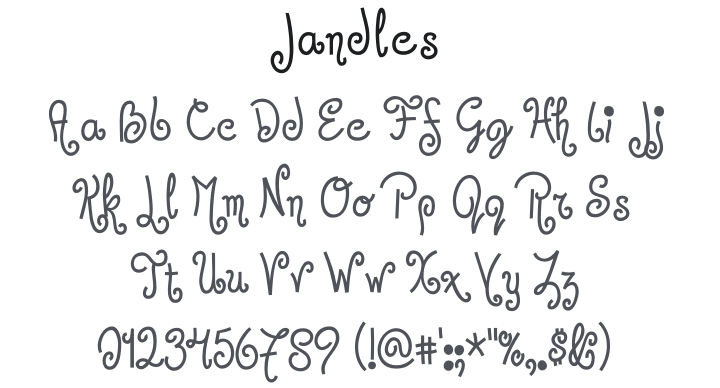 Jandles
Aa Bb Cc Dd Ee Ff Gg Hh Ii Jj
Kk Ll Mm Nn Oo Pp Qq Rr Ss
Tt Uu Vv Ww Xx Yy Zz
0123456789 (!@#':;*"%,.$&)